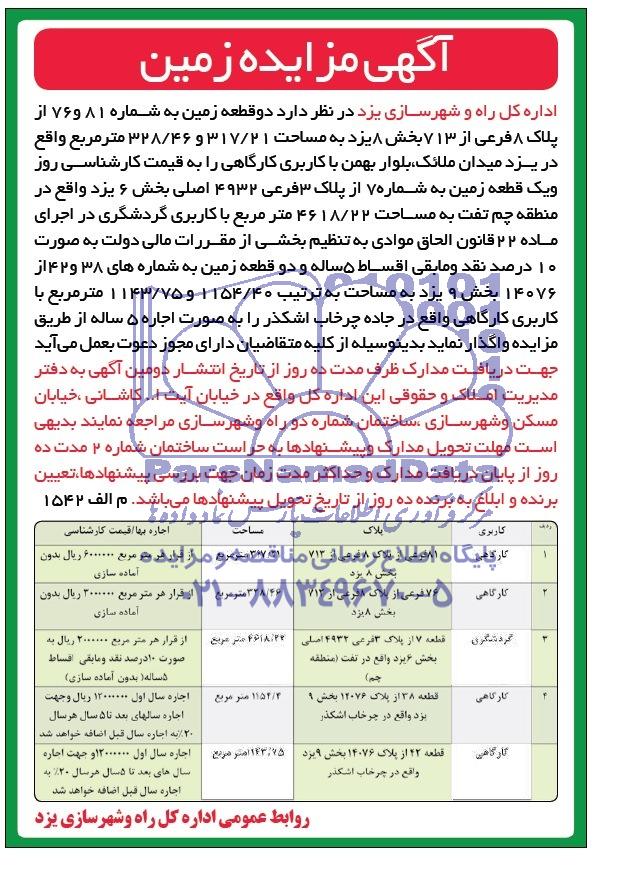 آگهی مزایده زمین
اداره کل راه و شهرسازی یزد در نظر دارد دوقطعه زمین به شماره ۸۱ و۷۶ از
پلاک ۸فرعی از ۷۱۳بخش ۸یزد به مساحت ۳۱۷/۲۱ و ۳۲۸/۴۶ مترمربع واقع
در یزد میدان ملائک،بلوار بهمن با کاربری کارگاهی را به قیمت کارشناسی روز
ویک قطعه زمین به شماره۷ از پلاک ۳فرعی ۴۹۳۲ اصلی بخش ۶ یزد واقع در
منطقه چم تفت به مساحت ۴۶۱۸/۲۲ متر مربع با کاربری گردشگری در اجرای
ماده ۲۲قانون الحاق موادی به تنظیم بخشی از مقررات مالی دولت به صورت
۱۰ درصد نقد ومابقی اقساط ۵ساله و دو قطعه زمین به شماره های ۳۸ و۴۲از
۱۴۰۷۶ بخش ۹ یزد به مساحت به ترتیب ۱۱۵۴/۴۰ و ۱۱۴۳/۷۵ مترمربع با
کاربری کارگاهی واقع در جاده چرخاب اشکذر را به صورت اجاره ۵ ساله از طریق
مزایده واگذار نماید بدینوسیله از کلیه متقاضیان دارای مجوز دعوت بعمل می‌آید
جهت دریافت مدارک ظرف مدت ده روز از تاریخ انتشار دومین آگهی به دفتر
مدیریت املاک و حقوقی این اداره کل واقع در خیابان آیت ا.. کاشانی ،خیابان
مسکن وشهرسازی ،ساختمان شماره دو راه وشهرسازی مراجعه نمایند بدیهی
است مهلت تحویل مدارک وپیشنهادها به حراست ساختمان شماره ۲ مدت ده
روز از پایان دریافت مدارک و حداکثر مدت زمان جهت بررسی پیشنهادها،تعیین
برنده و ابلاغ به برنده ده روز از تاریخ تحویل پیشنهادها می‌باشد. م الف ۱۵۴۲
ردیف کاربری پلاک مساحت اجاره بها/قیمت کارشناسی
۱ کارگاهی ۸۱فرعی از پلاک ۸فرعی از ۷۱۳ مترمربع از قرار هر متر مربع ۶۰۰۰۰۰۰ ریال بدون
بخش ۸ یزد آماده سازی
۲ کارگاهی ۷۶فرعی از پلاک ۸فرعی از ۷۱۳ ۳۲۸/۴۶مترمربع از قرار هر متر مربع ریال بدون
بخش ۸یزد آماده سازی
۳ گردشگری قطعه ۷ از پلاک ۳فرعی ۴۹۳۲ اصلی ۴۶۱۸/۲۲ متر مربع از قرار هر متر مربع ۲۰۰۰۰۰۰ ریال به
بخش ۶یزد واقع در تفت (منطقه صورت ۱۰درصد نقد ومابقی اقساط
چم) ۵ساله( بدون آماده سازی)
۴ کارگاهی قطعه ۳۸ از پلاک ۱۴۰۷۶ بخش ۹ ۱۱۵۴/۴ متر مربع اجاره سال اول ۱۲۰۰۰۰۰۰ ریال وجهت
یزد واقع در چرخاب اشکذر اجاره سالهای بعد تا ۵ سال هرسال
۲۰٪به اجاره سال قبل اضافه خواهد شد
کارگاهی قطعه ۴۲ از پلاک ۱۴۰۷۶بخش ۹یزد ۱۱۴۳/۷۵متر مربع اجاره سال اول ۱۲۰۰۰۰۰۰و جهت اجاره
واقع در چرخاب اشکذر سال های بعد تا ۵سال هرسال ۲۰٪ به
اجاره سال قبل اضافه خواهد شد
روابط عمومی اداره کل راه وشهرسازی یزد
ParsNamadData
مرکز فرآوری اطلاعات پارس نماد داده‌ها
پایگاه اطلاع رسانی مناقصه و مزایده
۰۲۱-۸۸۳۴۹۶۷۰-۵